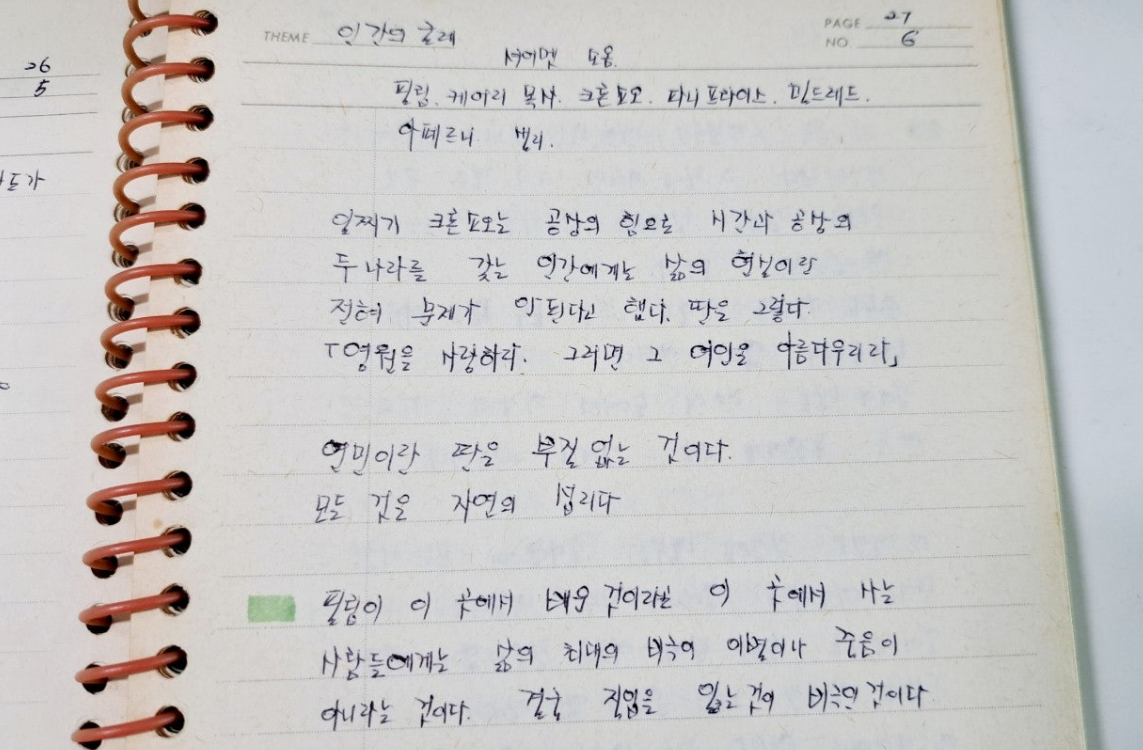 26
5
도가
THEME 인간의 굴레
PAGE 27
NO. 6
서머셋 모옴.
필립. 케어리 목사. 크론쇼오. 파니 프라이스. 밀드레드.
아페르니 벨리.
일찌기 크론쇼오는 공상의 힘으로 시간과 공상의
두 나라를 갖는 인간에게는 삶의 현실이란
전혀 문제가 안된다고 했다. 딴은 그렇다.
「영원을 사랑하라. 그러면 그 여인은 아름다우리라」
연민이란 딴은 부질 없는 것이다.
모든 것은 자연의 섭리다
필립이 이 곳에서 배운 것이라곤 이 곳에서 사는
사람들에게는 삶의 최대의 비극이 이별이나 죽음이
아니라는 것이다. 결국 직업을 잃는 것이 비극인 것이다.